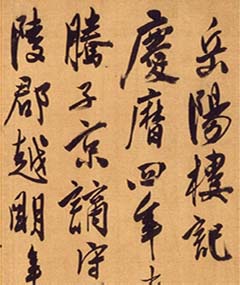 岳陽樓記
慶曆四年春
滕子京謫守
陵郡越明年